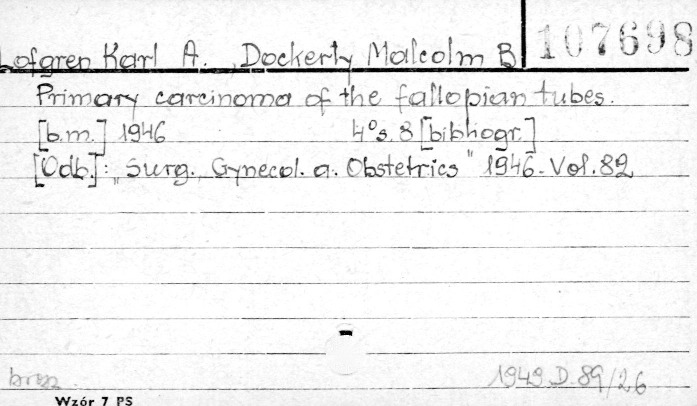 107698
Lofgren Karl A., Dockerty Malcolm B
Primary carcinoma of the fallopian tubes.
[b.m.] 1946 4°s. 8 [bibliogr.]
[Odb.]: „Surg. Gynecol. a. Obstetrics" 1946. Vol. 82
brosz. 1949 D. 89/26
Wzór 7 PS